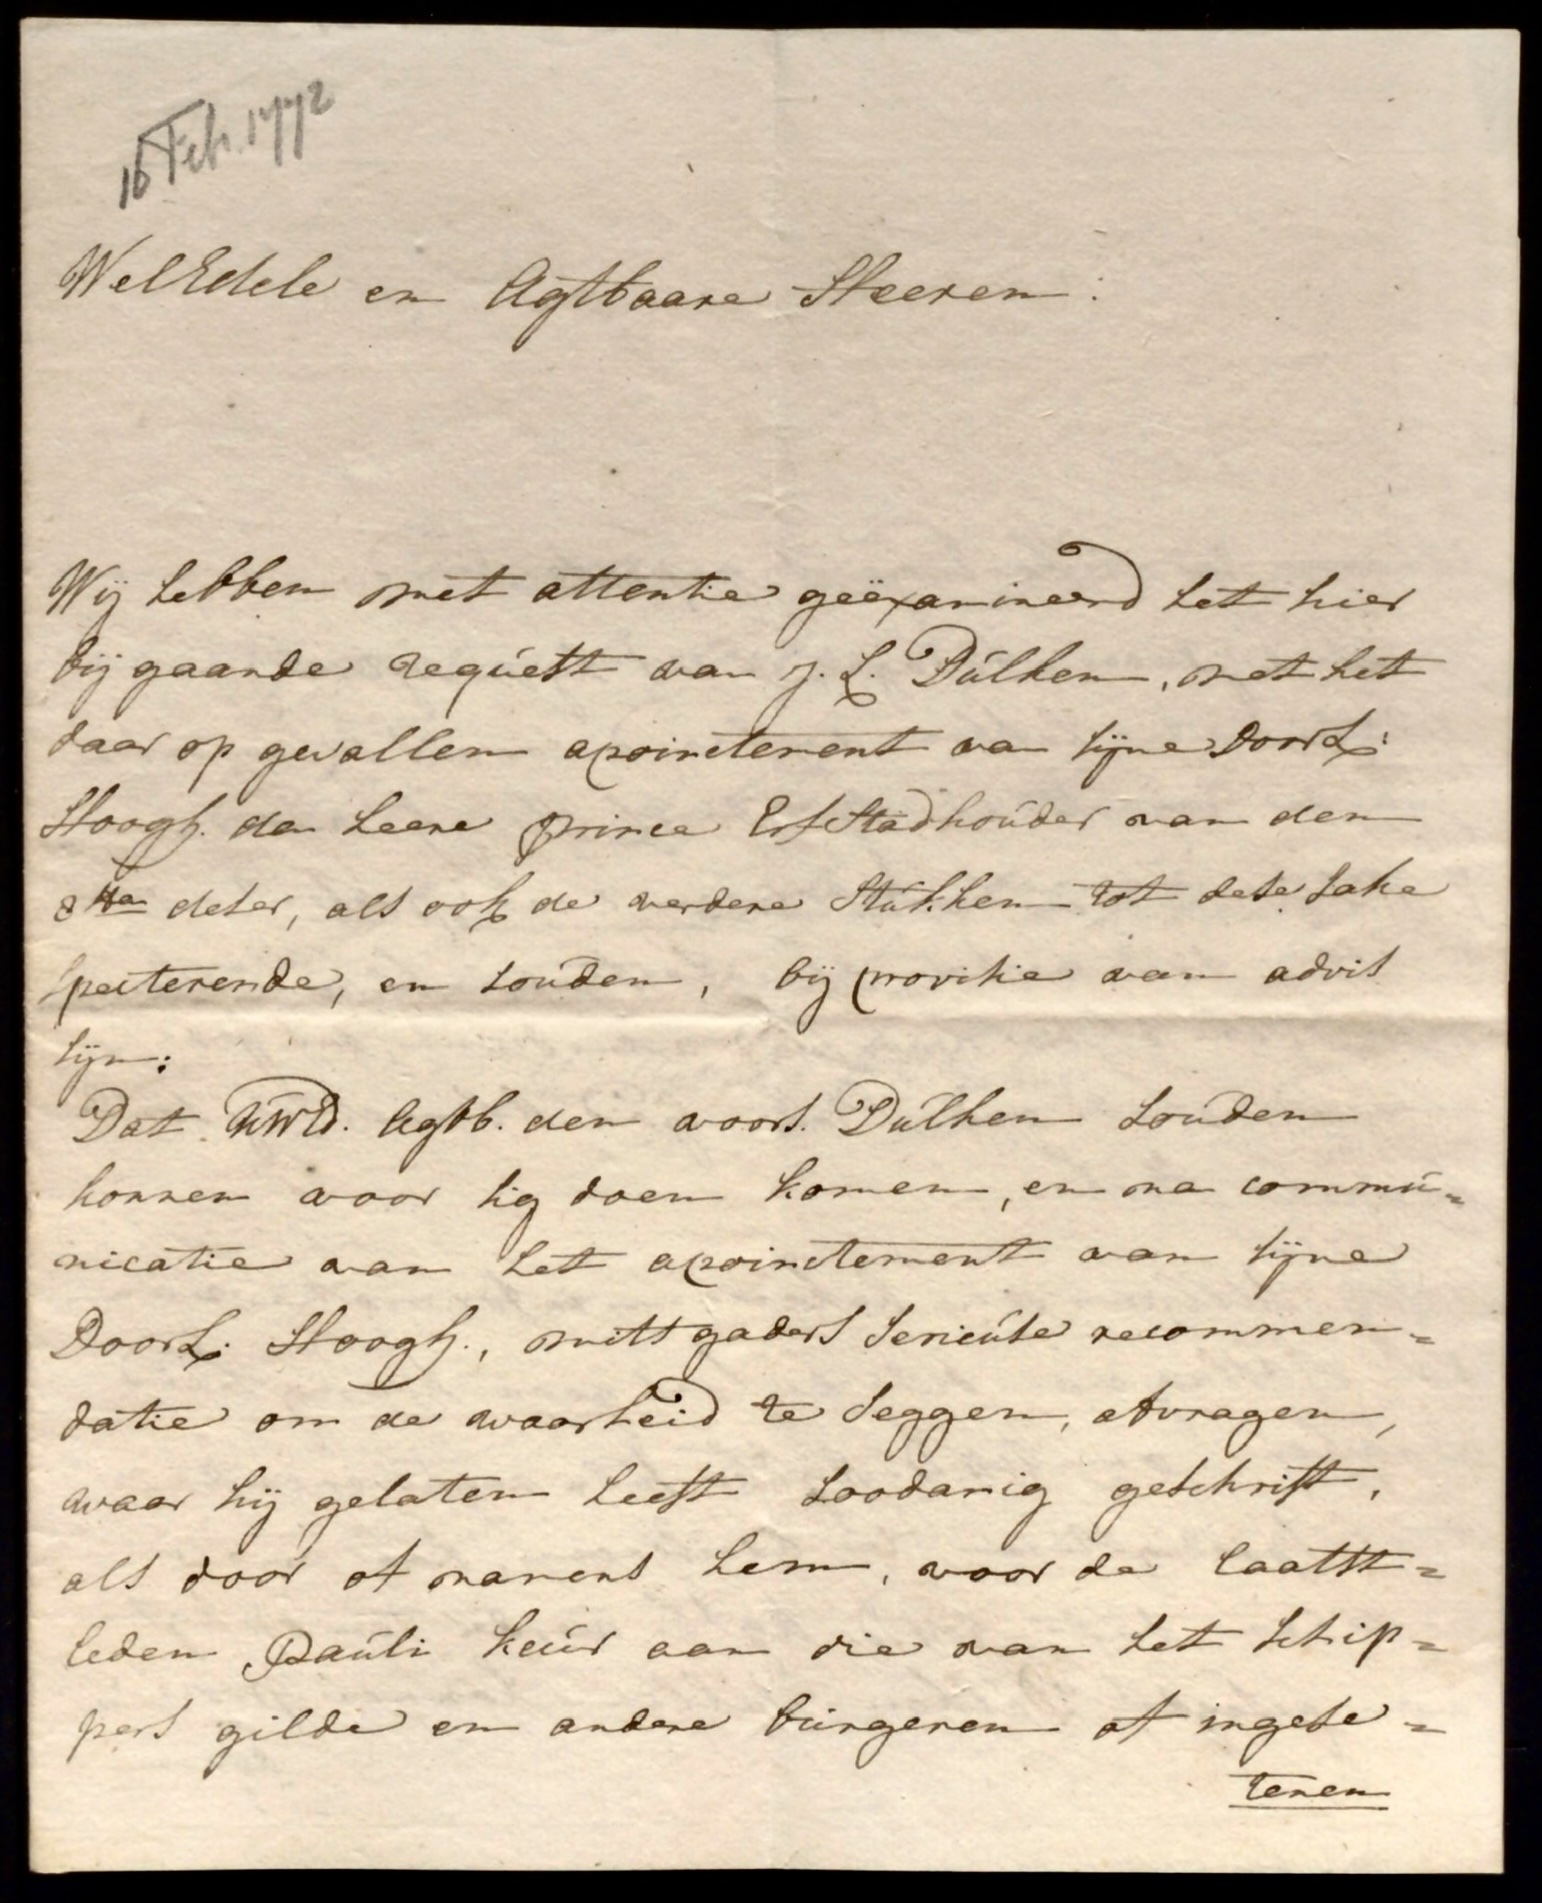 16 Feb. 1772
WelEdele en Agtbaare Heeren:
Wij hebben met attentie geëxamineerd het hier
bij gaande requést van J. L. Dúlken, met het
daar op gevallen apoinctement van sijne Doorl:
Hoogh. den heere prince ErfStadhoúder van den
8sten deser, als ook de verdere Stúkken tot dese sake
specterende, en soúden, bij provisie van advis
sijn:
Dat UWEd. Agtb. den voors. Dúlken soúden
konnen voor sig doen komen, en na commú=
nicatie van het apoinctement van sijne
Doorl. Hoogh., mitsgaders serieúse recommen=
datie om de waarheid te seggen, afvragen,
waar hij gelaten heeft soodanig geschrift,
als door of namens hem, voor de laatst=
leden Paúli keúr aan die van het schip=
pers gilde en andere búrgeren of ingese=
tenen